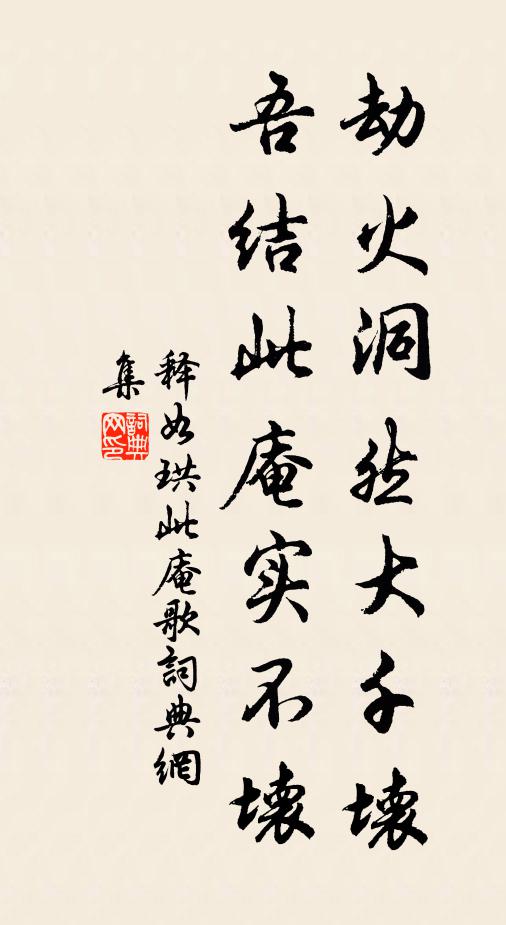 劫火洞然大千壞
吾结此庵实不壞
释如珙此庵歌詞典網
集
詞典
网印